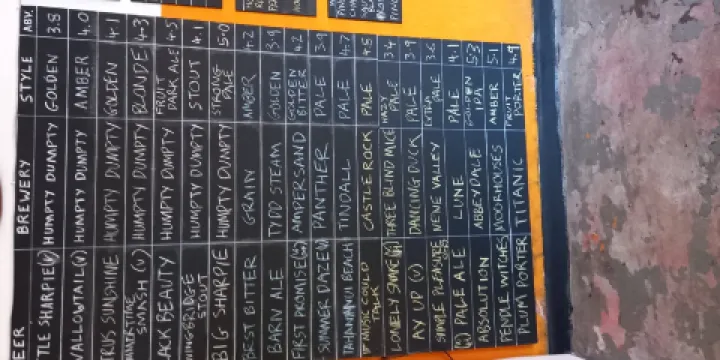 BREWERY STYLE ABV.
TLE SHARPIE (V) HUMPTY DUMPTY GOLDEN 3.8
WALLOWTAIL (V) HUMPTY DUMPTY AMBER 4.0
TRUS SUNSHINE HUMPTY DUMPTY GOLDEN 4.1
SMASH (V) HUMPTY DUMPTY BLONDE 4.3
ACK BEAUTY HUMPTY DUMPTY FRUIT DARK ALE 4.5
BRIDGE STOUT HUMPTY DUMPTY STOUT 4.1
BIG SHARPIE HUMPTY DUMPTY STRONG PALE 5.0
BEST BITTER GRAIN AMBER 4.2
BARN ALE TYDD STEAM GOLDEN 3.9
FIRST PROMISE AMPERSAND GOLDEN BITTER 4.2
SUMMER DAZE PANTHER PALE 3.9
BEACH TINDALL PALE 4.7
MUSIC COULD TALK CASTLE ROCK PALE 4.5
LONELY SNAKE THREE BLIND MICE HAZY PALE 3.4
AY UP (V) DANCING DUCK PALE 3.9
SIMPLE PLEASURES NENE VALLEY EXTRA PALE 3.6
PALE ALE LUNE PALE 4.1
ABSOLUTION ABBEYDALE GOLDEN IPA 5.3
PENDLE WITCHES MOORHOUSES AMBER 5.1
PLUM PORTER TITANIC FRUIT PORTER 4.9